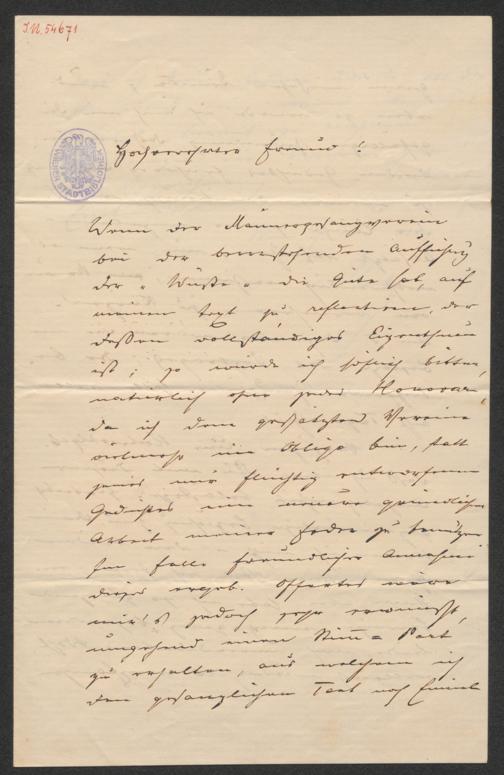 J.N. 54671
STADTBIBLIOTHEK
Hochverehrter Freund !
Wenn der Männergesangverein
bei der bevorstehenden Aufführung
der „Wüste" die Güte hat, auf
meinen Text zu reflectiren, der
dessen vollständiges Eigenthum
ist; so würde ich höflich bitten,
natürlich ohne jedes Honorar,
da ich dem geschätzten Vereine
vielmehr im Obligo bin, statt
jenes nur flüchtig entworfenen
Gedichtes eine neuere gründliche
Arbeit meiner Feder zu benützen
Im Falle freundlicher Annahme
dieses ergeb. Offertes wäre
mir's jedoch sehr erwünscht,
umgehend einen Stim=Part
zu erhalten, aus welchem ich
den gesanglichen Text noch Einmal